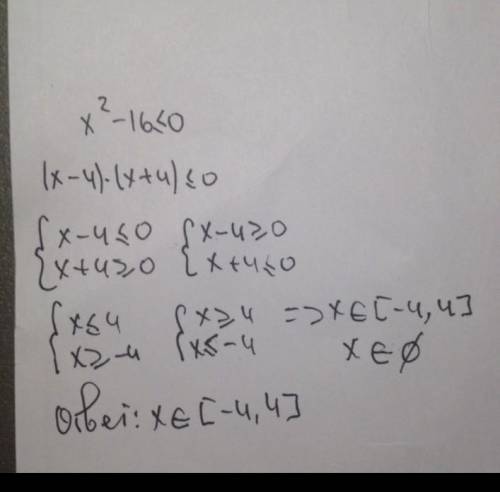 x²-16≤0
(x-4)·(x+4)≤0
{x-4≤0 {x-4≥0
{x+4≥0 {x+4≤0
{x≤4 {x≥4 => x∈[-4,4]
{x≥-4 {x≤-4 x∈∅
Ответ: x∈[-4,4]